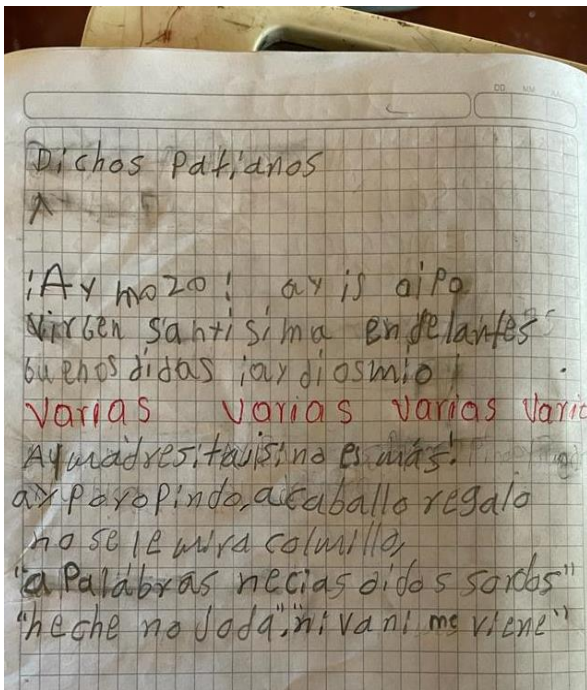 DD MM AA
Dichos Patianos
¡Ay mozo! ay is aipo
Virgen santisima endelantes
buenos didas ¡ay diosmio!
varias varias varias varia
Ay madresitauisino es más!
ay Poropindo, a caballo regalo
no se le mira colmillo,
"a Palabras necias oidos sordos"
"heche no Joda", "ni vani me viene"